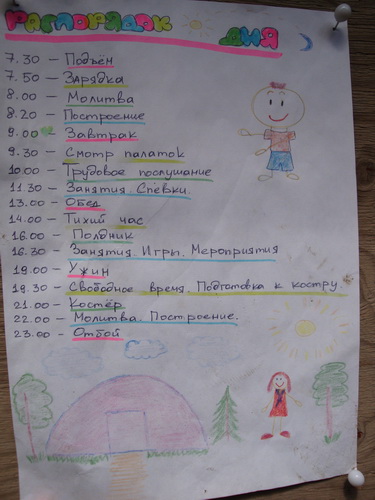 РАСПОРЯДОК ДНЯ
7.30 – Подъём
7.50 – Зарядка
8.00 – Молитва
8.20 – Построение
9.00 – Завтрак
9.30 – Смотр палаток
10.00 – Трудовое послушание
11.30 – Занятия. Спевки.
13.00 – Обед
14.00 – Тихий час
16.00 – Полдник
16.30 – Занятия. Игры. Мероприятия
19.00 – Ужин
19.30 – Свободное время. Подготовка к костру
21.00 – Костёр
22.00 – Молитва. Построение.
23.00 – Отбой